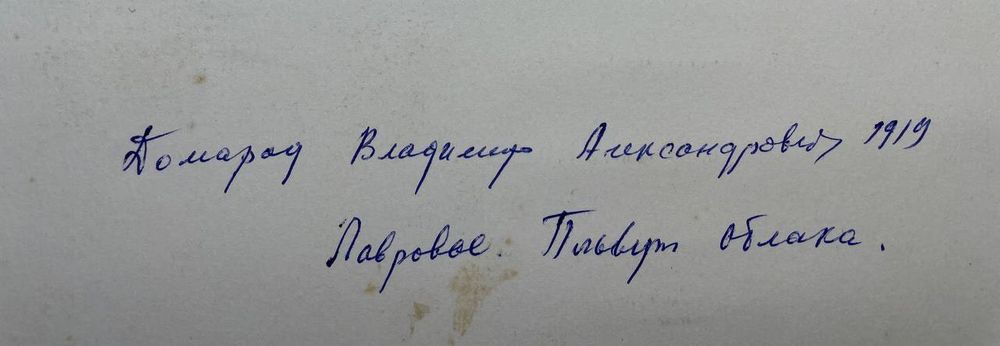 Домарад Владимир Александрович 1919
Лавровое. Плывут облака.